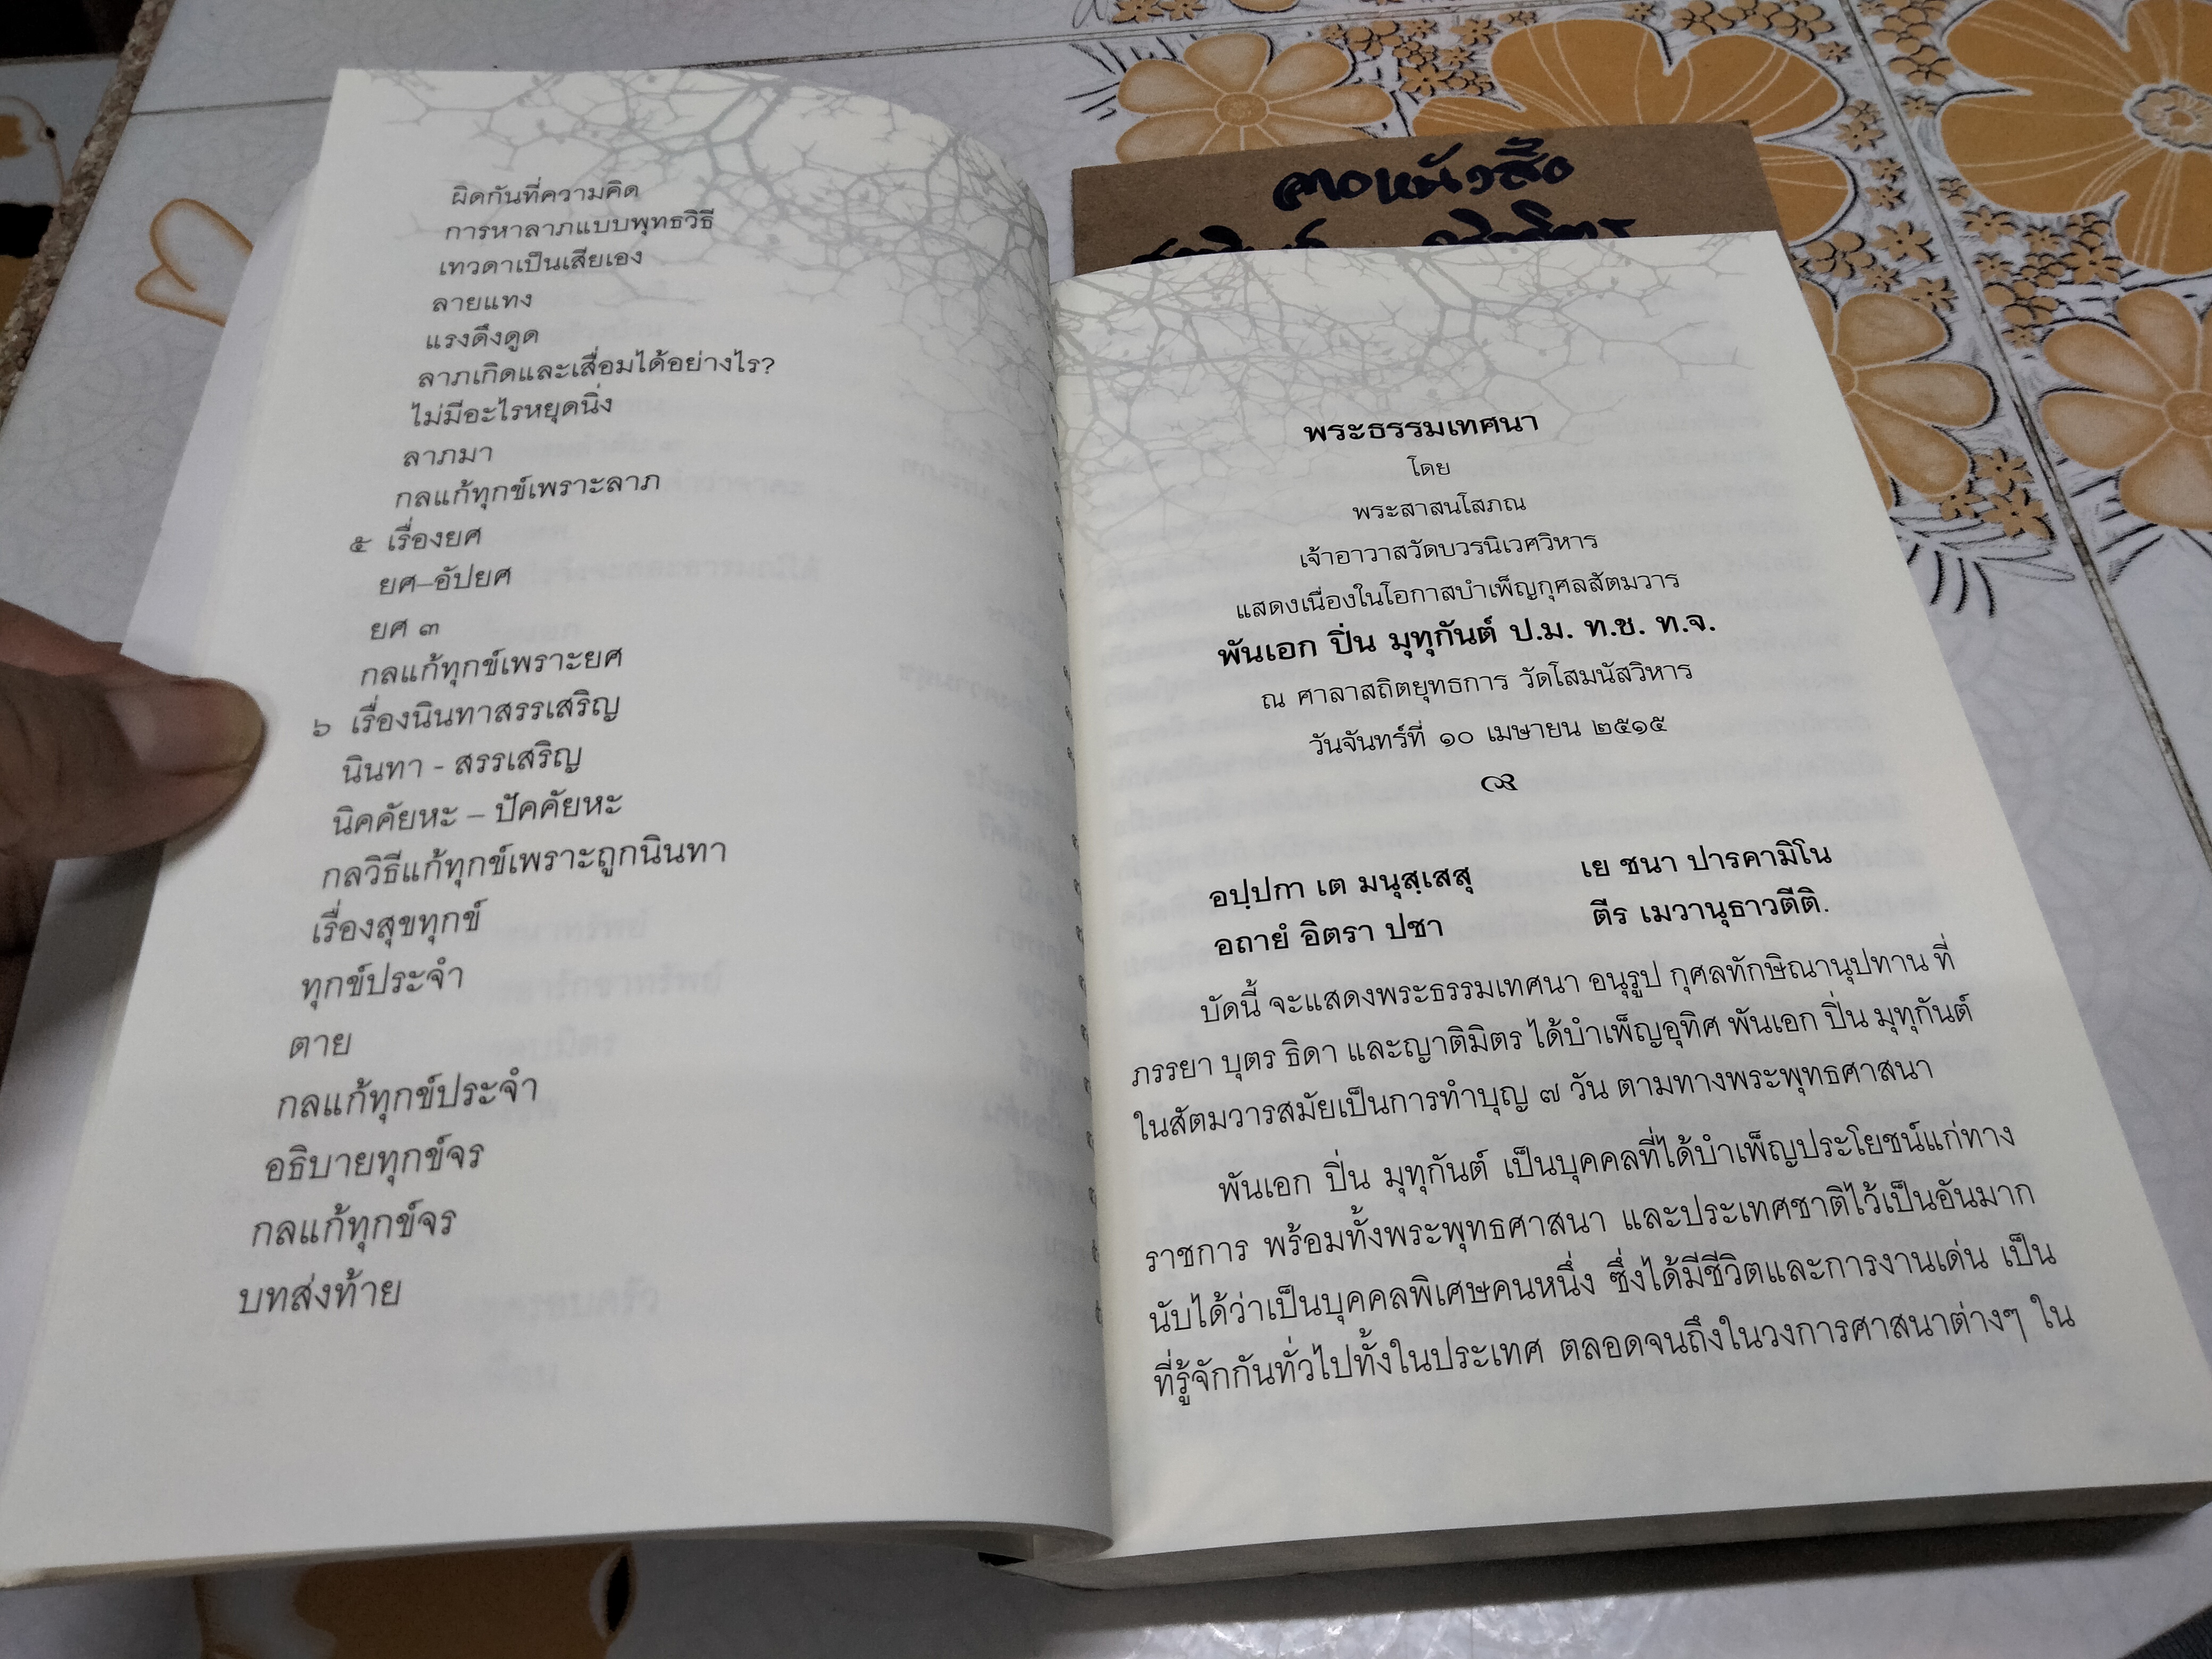 ผิดกันที่ความคิด
การหาลาภแบบพุทธวิธี
เทวดาเป็นเสียเอง
ลายแทง
แรงดึงดูด
ลาภเกิดและเสื่อมได้อย่างไร?
ไม่มีอะไรหยุดนิ่ง
ลาภมา
กลแก้ทุกข์เพราะลาภ
๕ เรื่องยศ
ยศ–อัปยศ
ยศ ๓
กลแก้ทุกข์เพราะยศ
๖ เรื่องนินทาสรรเสริญ
นินทา - สรรเสริญ
นิคคัยหะ – ปัคคัยหะ
กลวิธีแก้ทุกข์เพราะถูกนินทา
เรื่องสุขทุกข์
ทุกข์ประจำ
ตาย
กลแก้ทุกข์ประจำ
อธิบายทุกข์จร
กลแก้ทุกข์จร
บทส่งท้าย
พระธรรมเทศนา
โดย
พระสาสนโสภณ
เจ้าอาวาสวัดบวรนิเวศวิหาร
แสดงเนื่องในโอกาสบำเพ็ญกุศลสัตมวาร
พันเอก ปิ่น มุทุกันต์ ป.ม. ท.ช. ท.จ.
ณ ศาลาสถิตยุทธการ วัดโสมนัสวิหาร
วันจันทร์ที่ ๑๐ เมษายน ๒๕๑๕
อปฺปกา เต มนุสฺเสสุ เย ชนา ปารคามิโน
อถายํ อิตรา ปชา ตีร เมวานุธาวตีติ.
บัดนี้ จะแสดงพระธรรมเทศนา อนุรูป กุศลทักษิณานุปทาน ที่
ภรรยา บุตร ธิดา และญาติมิตร ได้บำเพ็ญอุทิศ พันเอก ปิ่น มุทุกันต์
ในสัตมวารสมัยเป็นการทำบุญ ๗ วัน ตามทางพระพุทธศาสนา
พันเอก ปิ่น มุทุกันต์ เป็นบุคคลที่ได้บำเพ็ญประโยชน์แก่ทาง
ราชการ พร้อมทั้งพระพุทธศาสนา และประเทศชาติไว้เป็นอันมาก
นับได้ว่าเป็นบุคคลพิเศษคนหนึ่ง ซึ่งได้มีชีวิตและการงานเด่น เป็น
ที่รู้จักกันทั่วไปทั้งในประเทศ ตลอดจนถึงในวงการศาสนาต่างๆ ใน